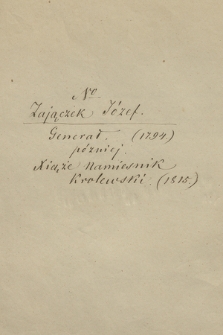 No
Zajączek Józef.
Generał. (1794)
później
Xiąże Namiesnik
Krolewski. (1815.)